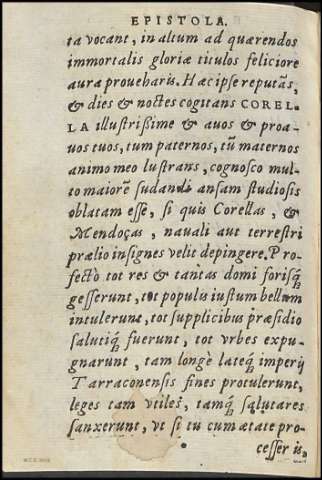 EPISTOLA.
ta vocant, in altum ad quærendos
immortalis gloriæ titulos feliciore
aura proueharis. Hæc ipse reputãs,
& dies & noctes cogitans COREL-
LA illustrissime & auos & proa-
uos tuos, tum paternos, tũ maternos
animo meo lustrans, cognosco mul-
to maiorẽ sudandi ansam studiosis
oblatam esse, si quis Corellas, &
Mendoças, nauali aut terrestri
prælio insignes velit depingere. Pro-
fectò tot res & tantas domi forisq́;
gesserunt, tot populis iustum bellum
intulerunt, tot supplicibus præsidio
salutiq́; fuerunt, tot vrbes expu-
gnarunt, tam longè lateq́; imperij
Tarraconensis fines protulerunt,
leges tam vtiles, tamq́; salutares
sanxerunt, vt si tu cum ætate pro-
cesser is,